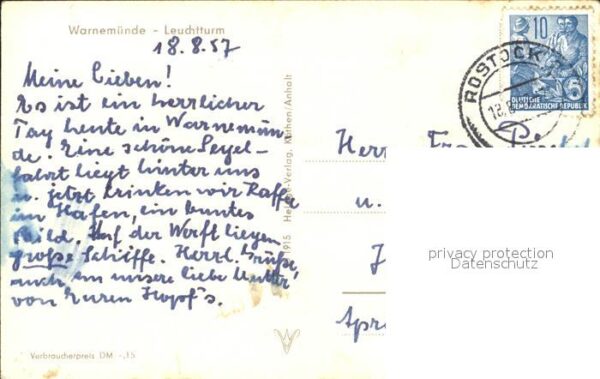 Warnemünde - Leuchtturm
18.8.57
Meine Lieben!
Es ist ein herrlicher
Tag heute in Warnemün-
de. Eine schöne Segel-
fahrt liegt hinter uns
u. jetzt trinken wir Kaffe
im Hafen, ein buntes
Bild. Auf der Werft liegen
große Schiffe. Herrl. Grüße,
auch an unsere liebe Mutter
von Euren Hopf's.
Verbraucherpreis DM -,15
Verlag, Köthen/Anhalt
1915
Herr
u.
Apr
ROSTOCK
10
5
DEUTSCHE
DEMOKRATISCHE REPUBLIK
privacy protection
Datenschutz